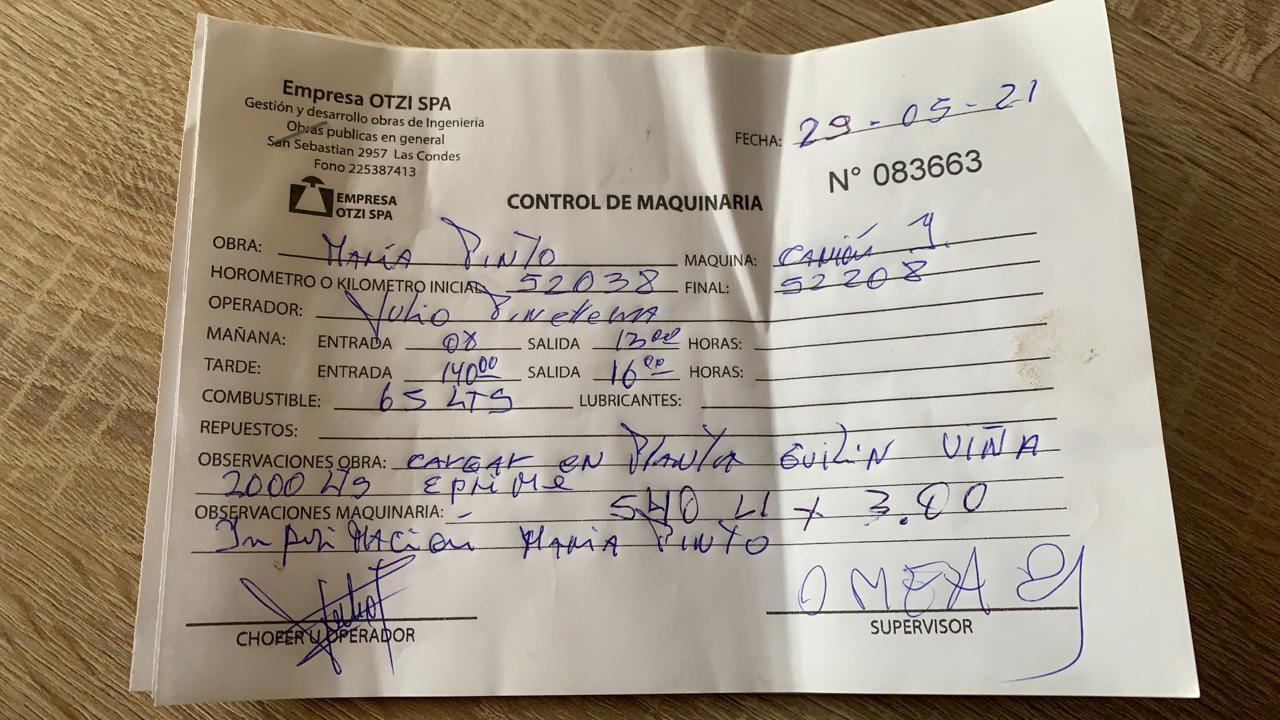 Empresa OTZI SPA
Gestión y desarrollo obras de Ingeniería
Obras publicas en general
San Sebastian 2957 Las Condes
Fono 225387413
EMPRESA
OTZI SPA
FECHA: 29-05-21
N° 083663
CONTROL DE MAQUINARIA
OBRA: María Pinto MAQUINA: Camión
HOROMETRO O KILOMETRO INICIAL 52038 FINAL: 52208
OPERADOR: Julio
MAÑANA: ENTRADA 08 SALIDA 13 00 HORAS:
TARDE: ENTRADA 14 00 SALIDA 16 00 HORAS:
COMBUSTIBLE: 65 LTS LUBRICANTES:
REPUESTOS:
OBSERVACIONES OBRA: cargar en Planta VIÑA
2000 Lts
OBSERVACIONES MAQUINARIA: 540 Lt x 3.00
María Pinto
CHOFER U OPERADOR
SUPERVISOR